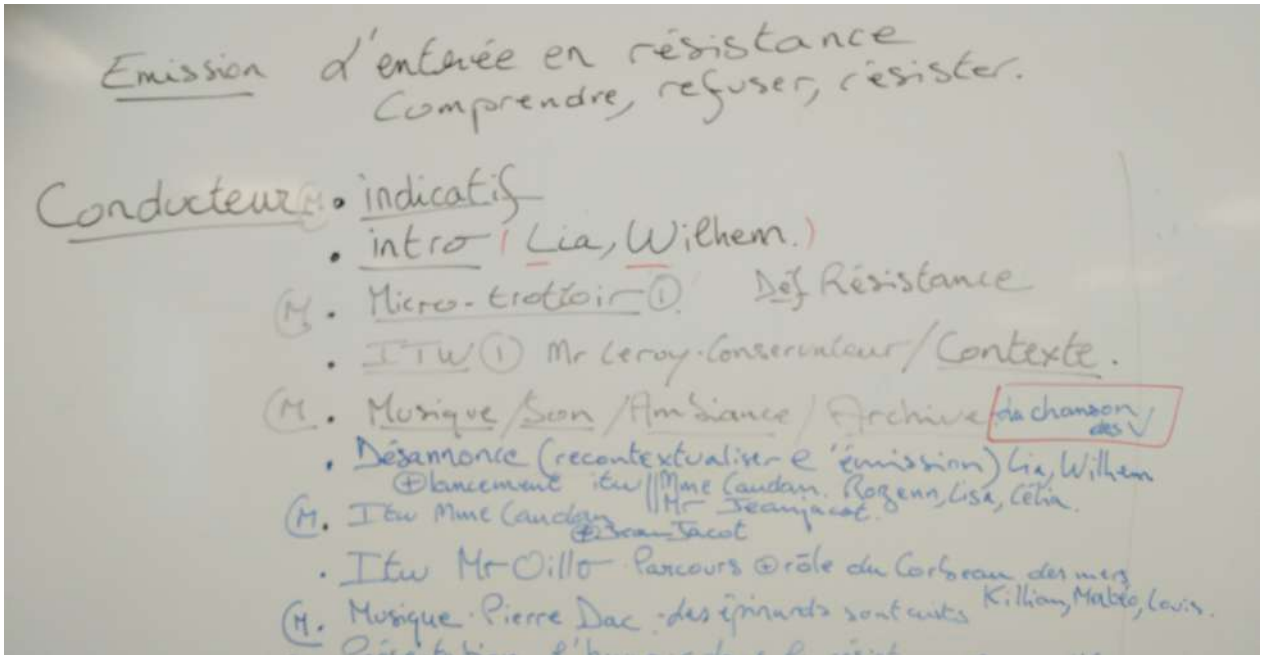 Emission d'entrée en résistance
Comprendre, refuser, résister.
Conducteur : • indicatif
• intro (Lia, Wilhem.)
(M. Micro-trottoir ① Déf Résistance
• ITW ① Mr Leroy. Conservateur / Contexte.
(M. Musique / Son / Ambiance / Archive chanson des V
• Désannonce (recontextualiser l'émission) Lia, Wilhem
⊕ lancement itw || Mme Caudan. Rozenn, Lisa, Célia.
Mr Jeanjacot.
(M. Itw Mme Caudan
⊕ Jean Jacot
• Itw Mr Oillo Parcours ⊕ rôle du Corbeau des mers
Killian, Mabéo, Louis.
(M. Musique. Pierre Dac. les épinards sont cuits